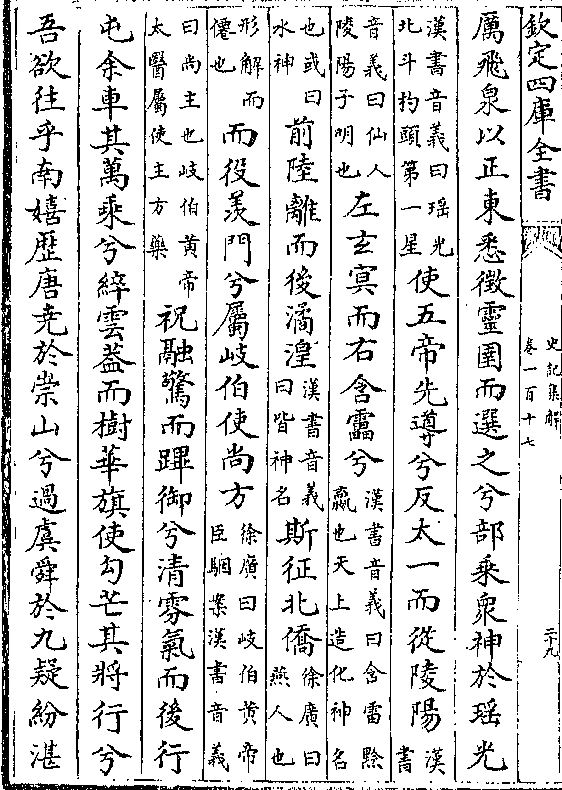 欽定四庫全書
史記集解
卷一百十七
二十九
厲飛泉以正東悉徵靈圉而選之兮部乘衆神於瑶光
漢書音義曰瑶光北斗杓頭第一星使五帝先導兮反太一而從陵陽漢書
音義曰仙人陵陽子明也左玄冥而右含靁兮漢書音義曰含雷黔嬴也天上造化神名
也或曰水神前陸離而後潏湟漢書音義曰皆神名斯征北僑徐廣曰燕人也
形解而僊也而役羨門兮屬岐伯使尚方徐廣曰岐伯黄帝臣駰案漢書音義
曰尚主也岐伯黄帝太醫屬使主方藥祝融驚而蹕御兮清雰氣而後行
屯余車其萬乘兮綷雲葢而樹華旗使勾芒其將行兮
吾欲往乎南嬉歴唐堯於崇山兮過虞舜於九疑紛湛